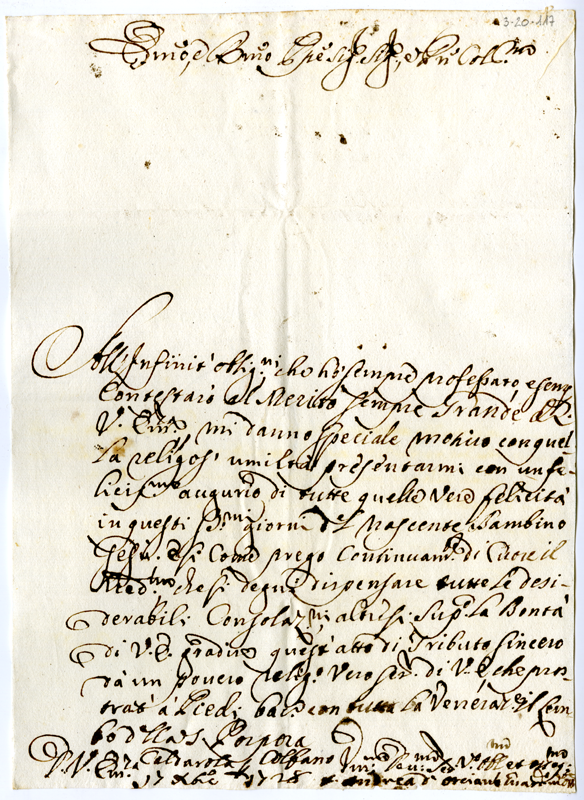 3-20-117
Em̃o, e Rm̃o Sig.r Sig.r, e Pñ Coll.mo
All'Infinit' oblig.ni che hò sempre professato, e sempre
Contestarò al Merito sempre Grande di
V. Em.za mi danno speciale motivo con quel-
la religios' umiltà presentarmi con un fe-
licis.mo augurio di tutte quelle vere felicità
in questi S.mi giorni del Nascente Bambino
Giesù. e si come prego Continuam.te di Cuore il
Med.mo che si degni dispensare tutte le desi-
derabili Consolaz.ni altresì sup.co la Bontà
di V. E. gradire quest' atto di Tributo sincero
da un povero relig.o vero ser.e di V. E. che pros-
trat' a Piedi bacio con tutta la Veneraz.e il Lem-
bo della S. Porpora
D. V. Em.za Caldarola
17 Xbre 1728